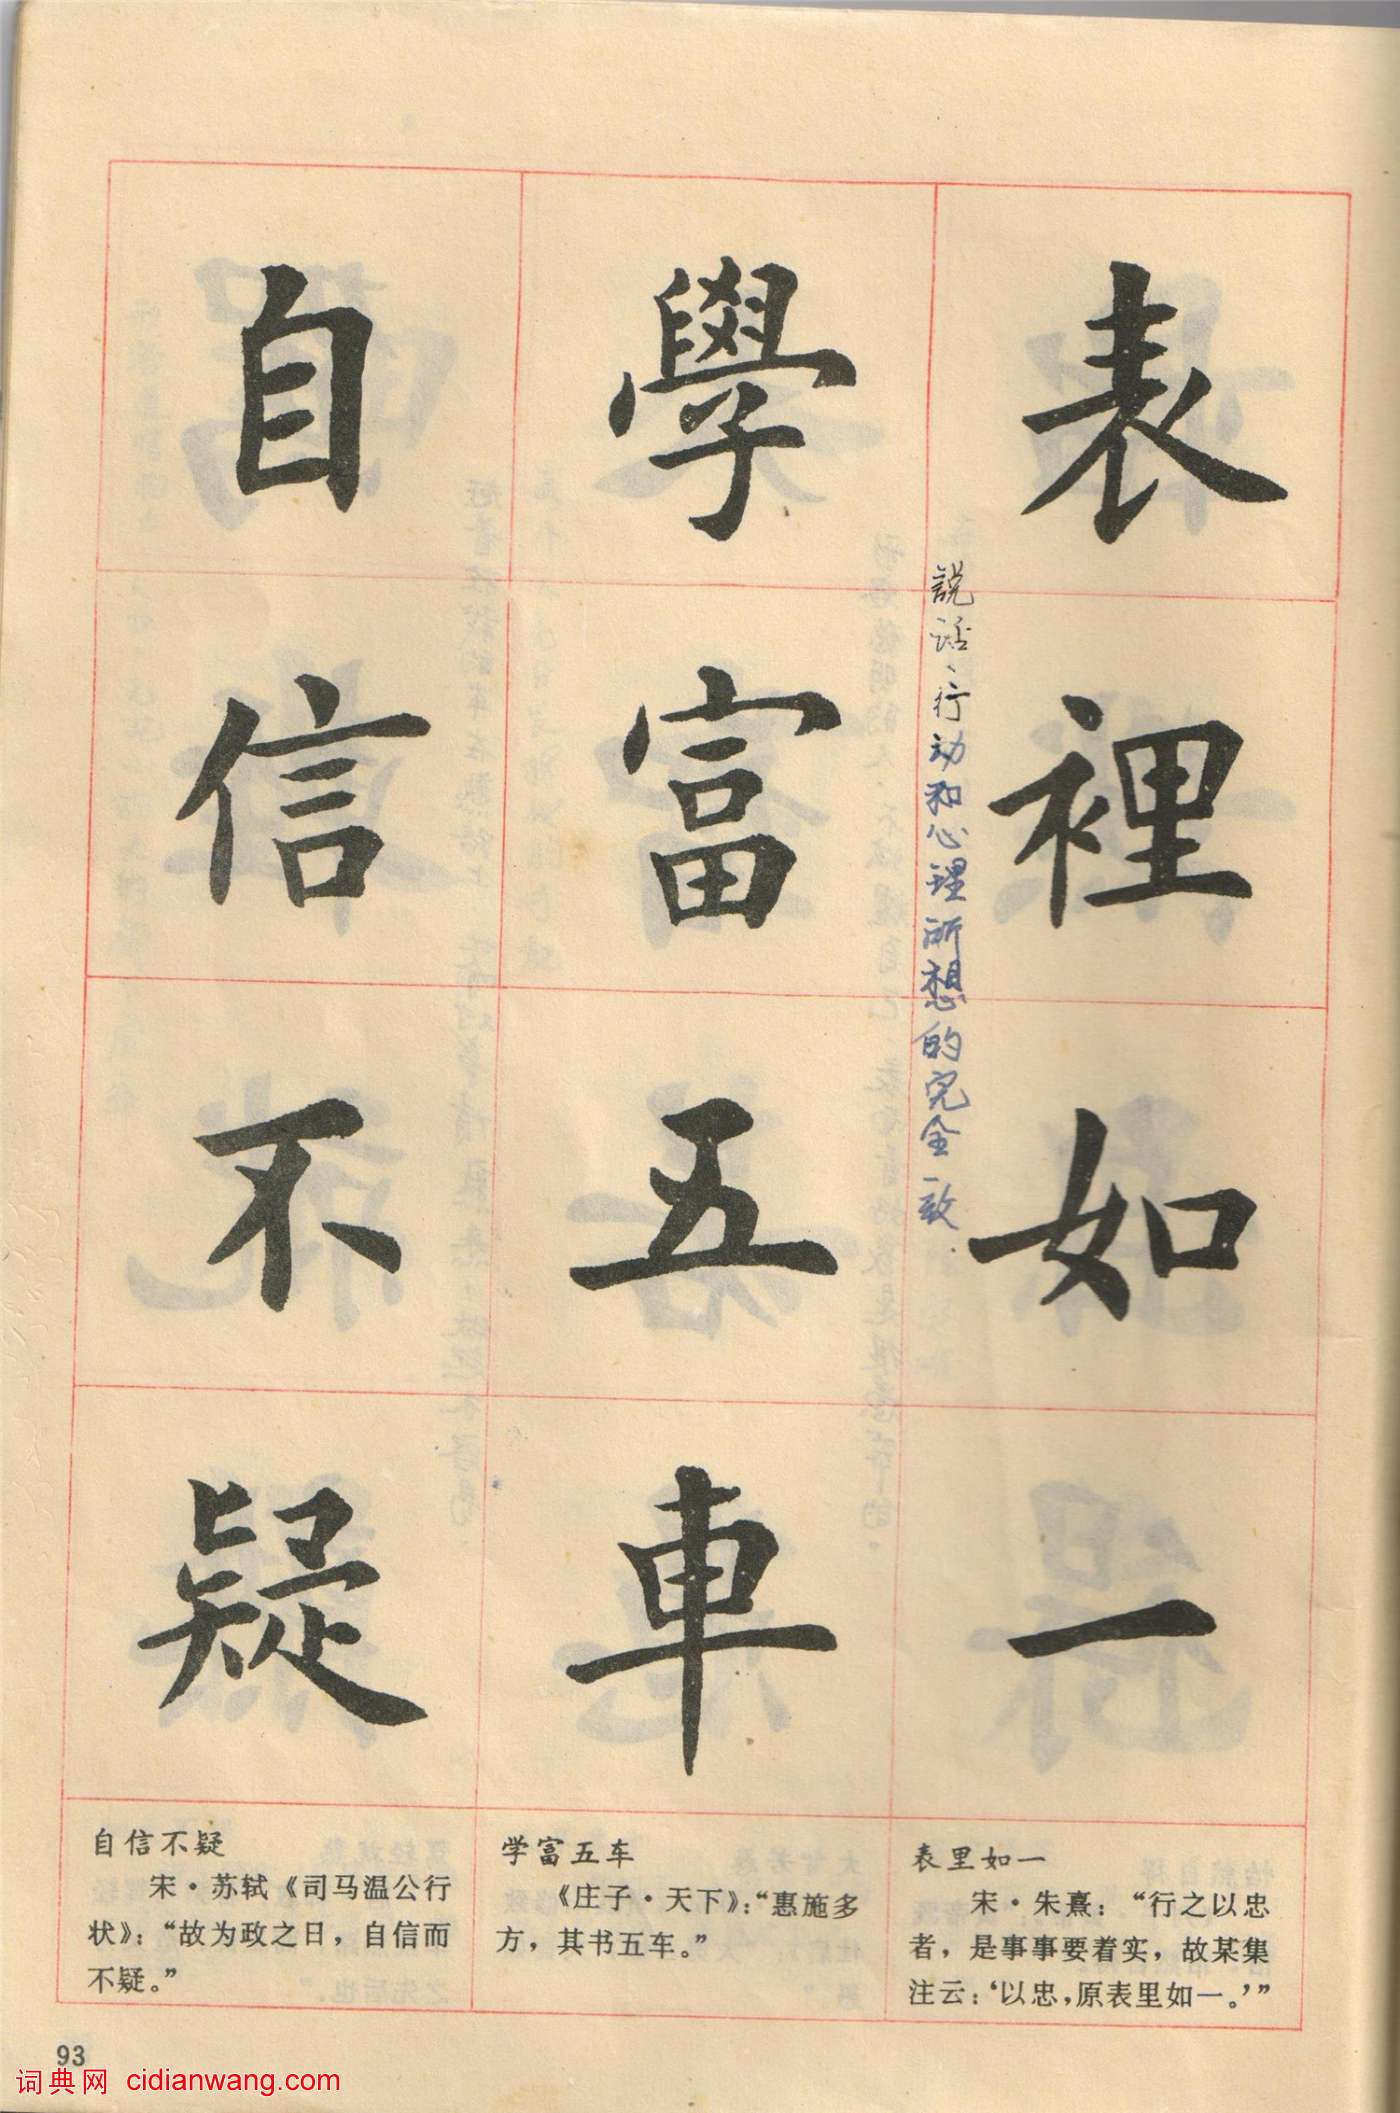 表裡如一
説话、行动和心理所想的完全一致.
學富五車
自信不疑
表里如一
宋·朱熹：“行之以忠
者，是事事要着实，故某集
注云：‘以忠，原表里如一。’”
学富五车
《庄子·天下》：“惠施多
方，其书五车。”
自信不疑
宋·苏轼《司马温公行
状》：“故为政之日，自信而
不疑。”
93
词典网 cidianwang.com